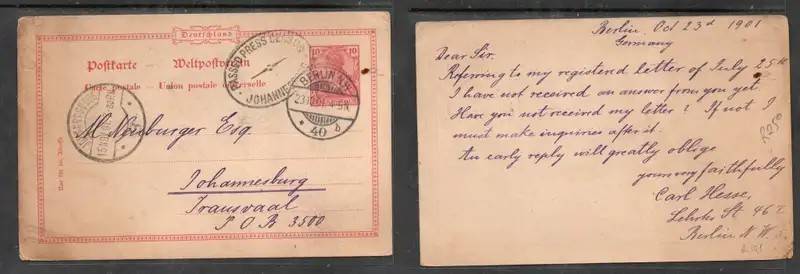 Deutschland
Postkarte — Weltpostverein
Carte postale — Union postale universelle
10 10
PASSED PRESS CENSOR
JOHANNES
BERLIN N.W.
40 b
M. Neuburger Esq.
Johannesburg
Transvaal
P O B 3500
Berlin, Oct 23d 1901
Germany
Dear Sir.
Referring to my registered letter of July 25th
I have not received an answer from you yet.
Have you not received my letter? If not I
must make inquiries after it.
An early reply will greatly oblige
yours very faithfully
Carl Hesse,
St 46
Berlin N. W.